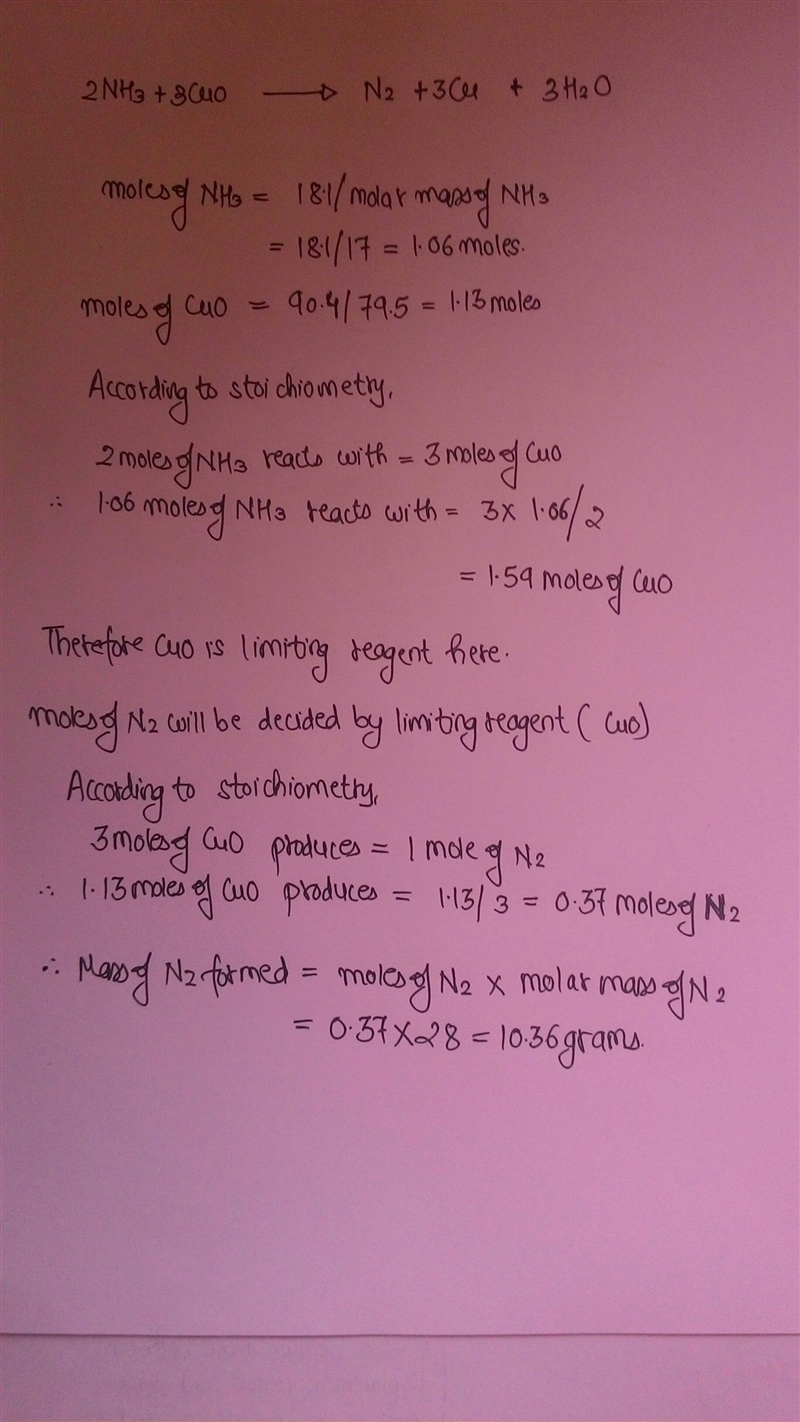 2NH3 + 3CuO → N2 + 3Cu + 3H2O
moles of NH3 = 18.1/molar mass of NH3
= 18.1/17 = 1.06 moles.
moles of CuO = 90.4/79.5 = 1.13 moles
According to stoichiometry,
2 moles of NH3 reacts with = 3 moles of CuO
∴ 1.06 moles of NH3 reacts with = 3 x 1.06/2
= 1.59 moles of CuO
Therefore CuO is limiting reagent here.
moles of N2 will be decided by limiting reagent ( CuO)
According to stoichiometry,
3 moles of CuO produces = 1 mole of N2
∴ 1.13 moles of CuO produces = 1.13/3 = 0.37 moles of N2
∴ Mass of N2 formed = moles of N2 x molar mass of N2
= 0.37 x 28 = 10.36 grams.